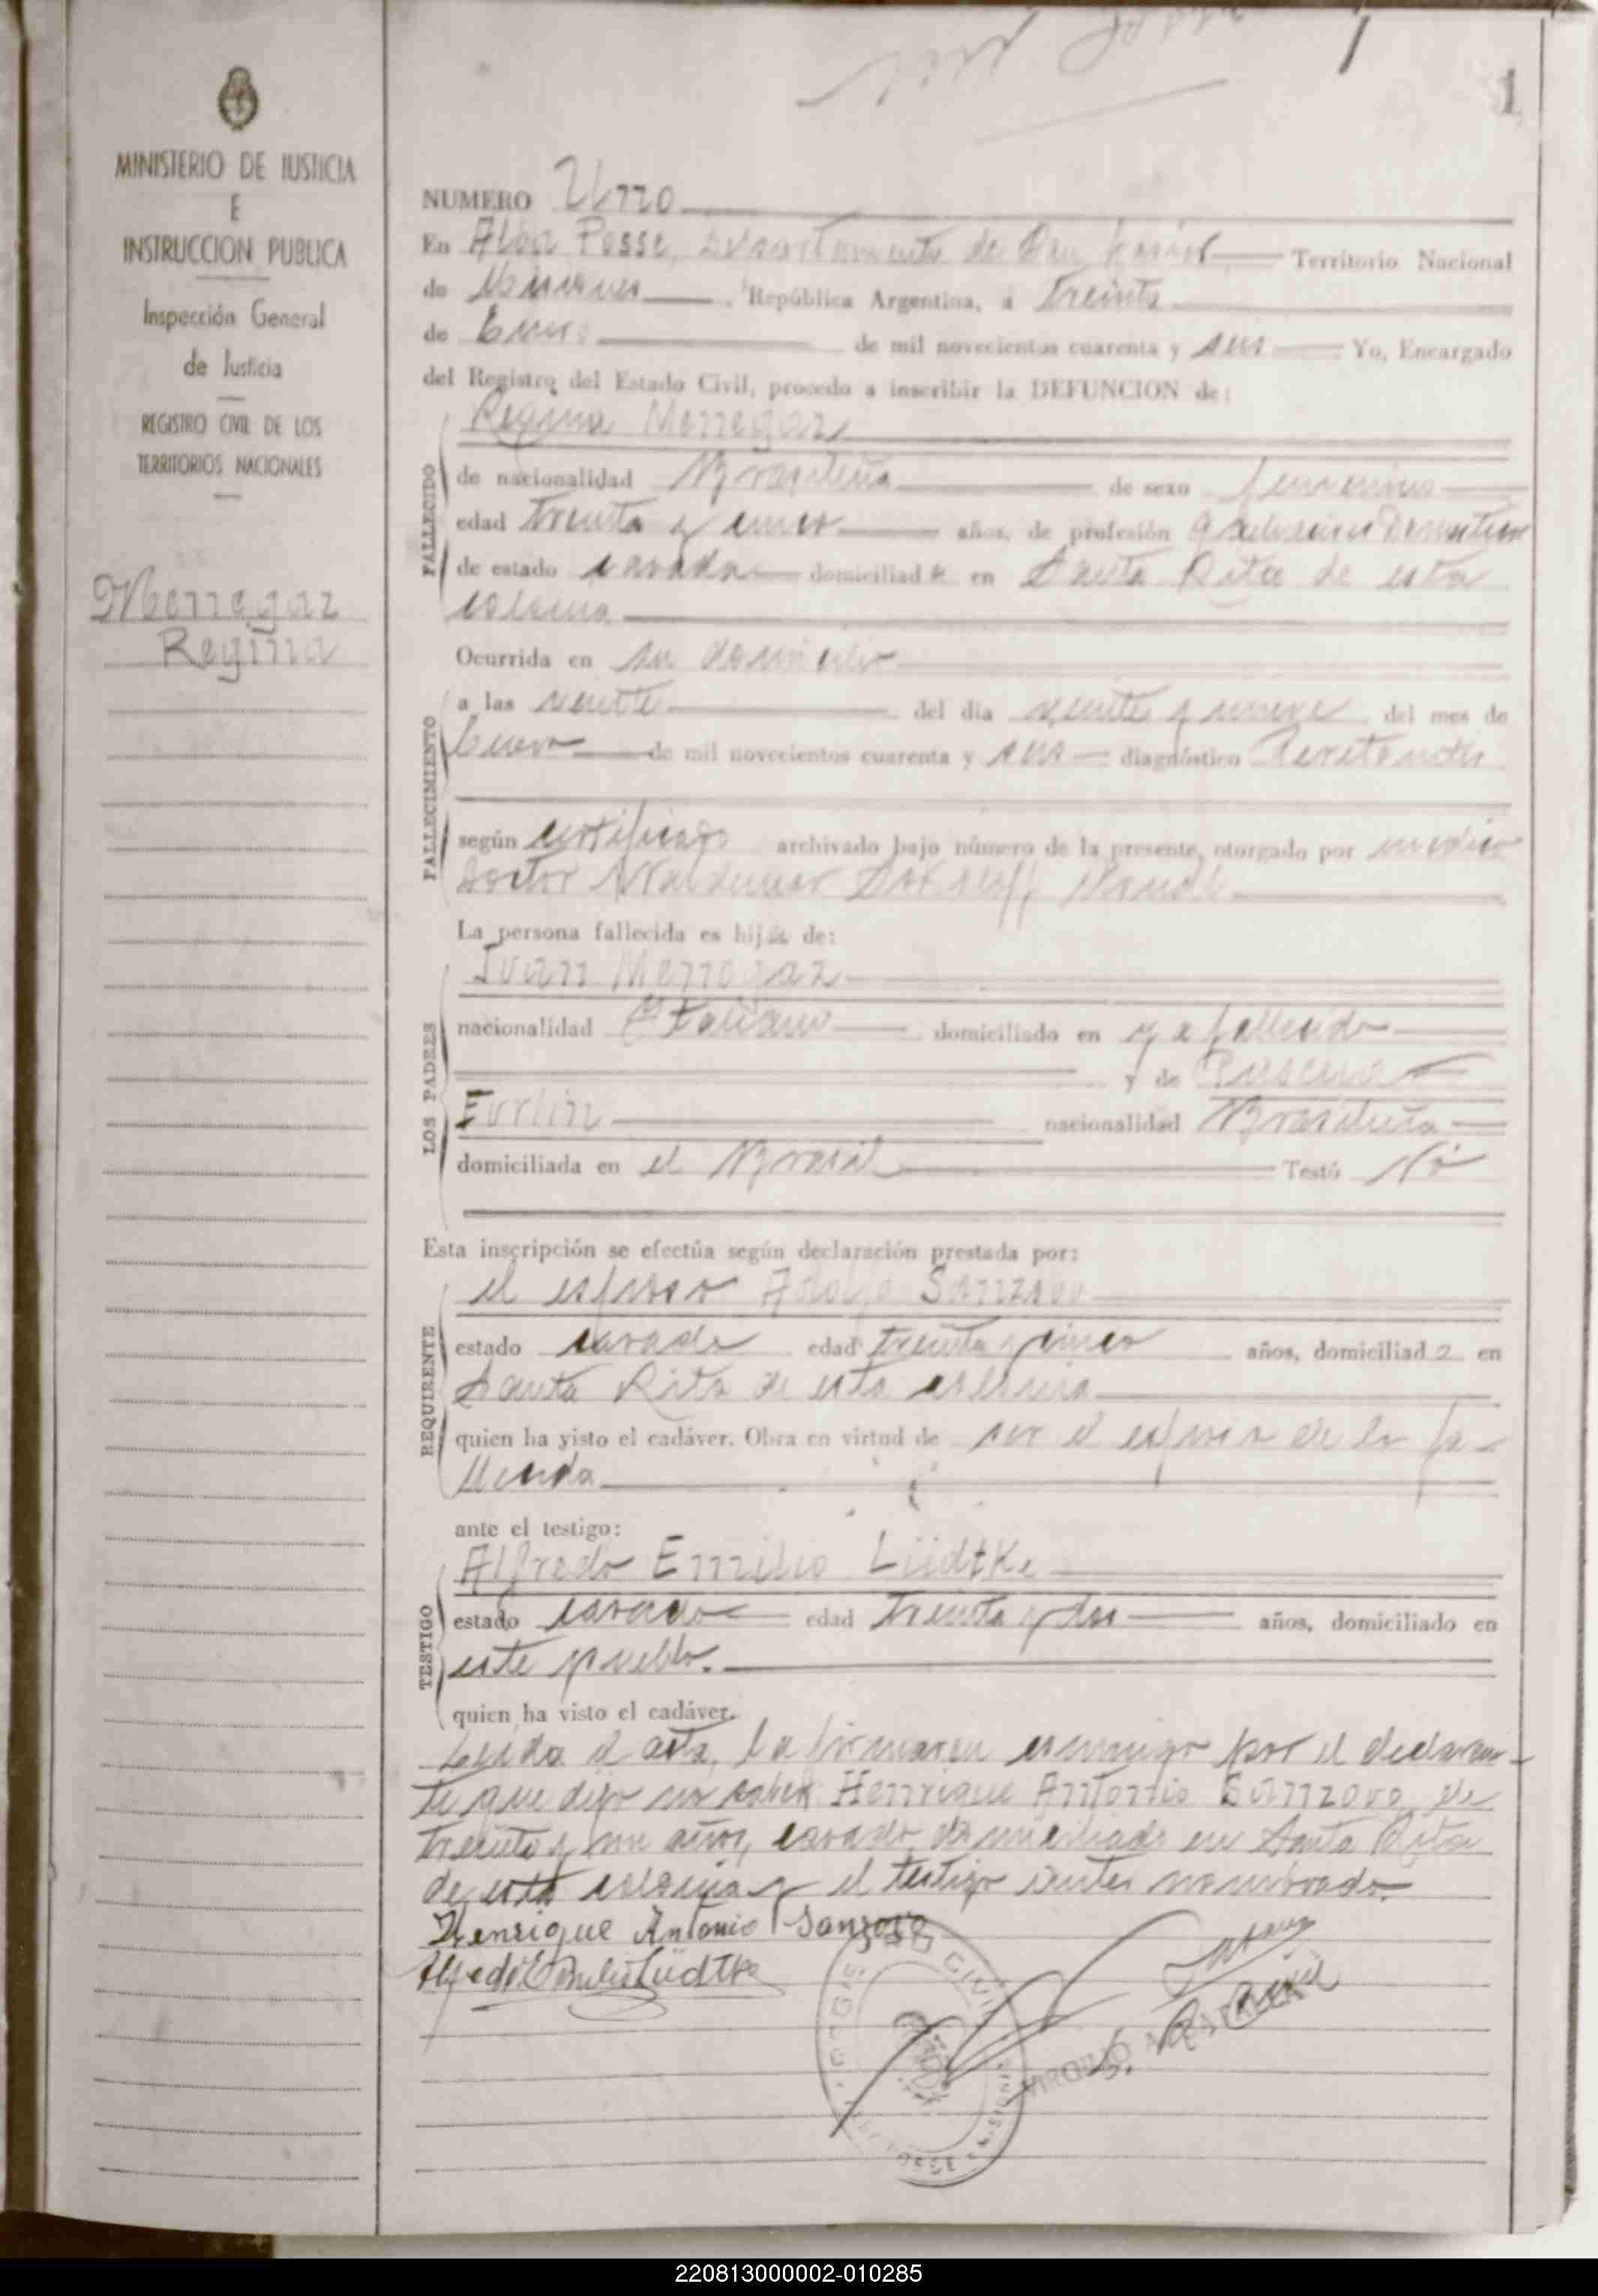 1
MINISTERIO DE JUSTICIA
E
INSTRUCCION PUBLICA
Inspección General
de Justicia
REGISTRO CIVIL DE LOS
TERRITORIOS NACIONALES
Menegaz
Regina
NUMERO Uno
En Alba Posse, Departamento de Territorio Nacional
de Misiones República Argentina, a treinta
de Enero de mil novecientos cuarenta y seis Yo, Encargado
del Registro del Estado Civil, procedo a inscribir la DEFUNCION de:
Regina Menegaz
FALLECIDO
de nacionalidad Brasileña de sexo femenino
edad treinta y cinco años, de profesión
de estado casada domiciliada en Santa Rita de esta
colonia
FALLECIMIENTO
Ocurrida en su domicilio
a las veinte del día veinte y nueve del mes de
Enero de mil novecientos cuarenta y seis diagnóstico Peritonitis
según certificado archivado bajo número de la presente, otorgado por medico
Doctor Waldemar
La persona fallecida es hija de:
LOS PADRES
Ivan Menegaz
nacionalidad Italiano domiciliado en ya fallecido
y de
Furlin nacionalidad Brasileña
domiciliada en el Brasil Testó No
Esta inscripción se efectúa según declaración prestada por:
REQUIRENTE
el esposo Adolfo Sanzovo
estado casado edad treinta y cinco años, domiciliado en
Santa Rita de esta colonia
quien ha visto el cadáver. Obra en virtud de ser el esposo de la fa-
llecida
ante el testigo:
TESTIGO
Alfredo Emilio Lüdtke
estado casado edad treinta y dos años, domiciliado en
este pueblo.
quien ha visto el cadáver.
Leida el acta, la firmaron conmigo por el declaran-
te que dijo no saber Henrique Antonio Sanzovo, de
treinta y un años, casado, domiciliado en Santa Rita
de esta colonia y el testigo antes nombrado.
Henrique Antonio Sanzovo
Alfredo Emilio Lüdtke
220813000002-010285